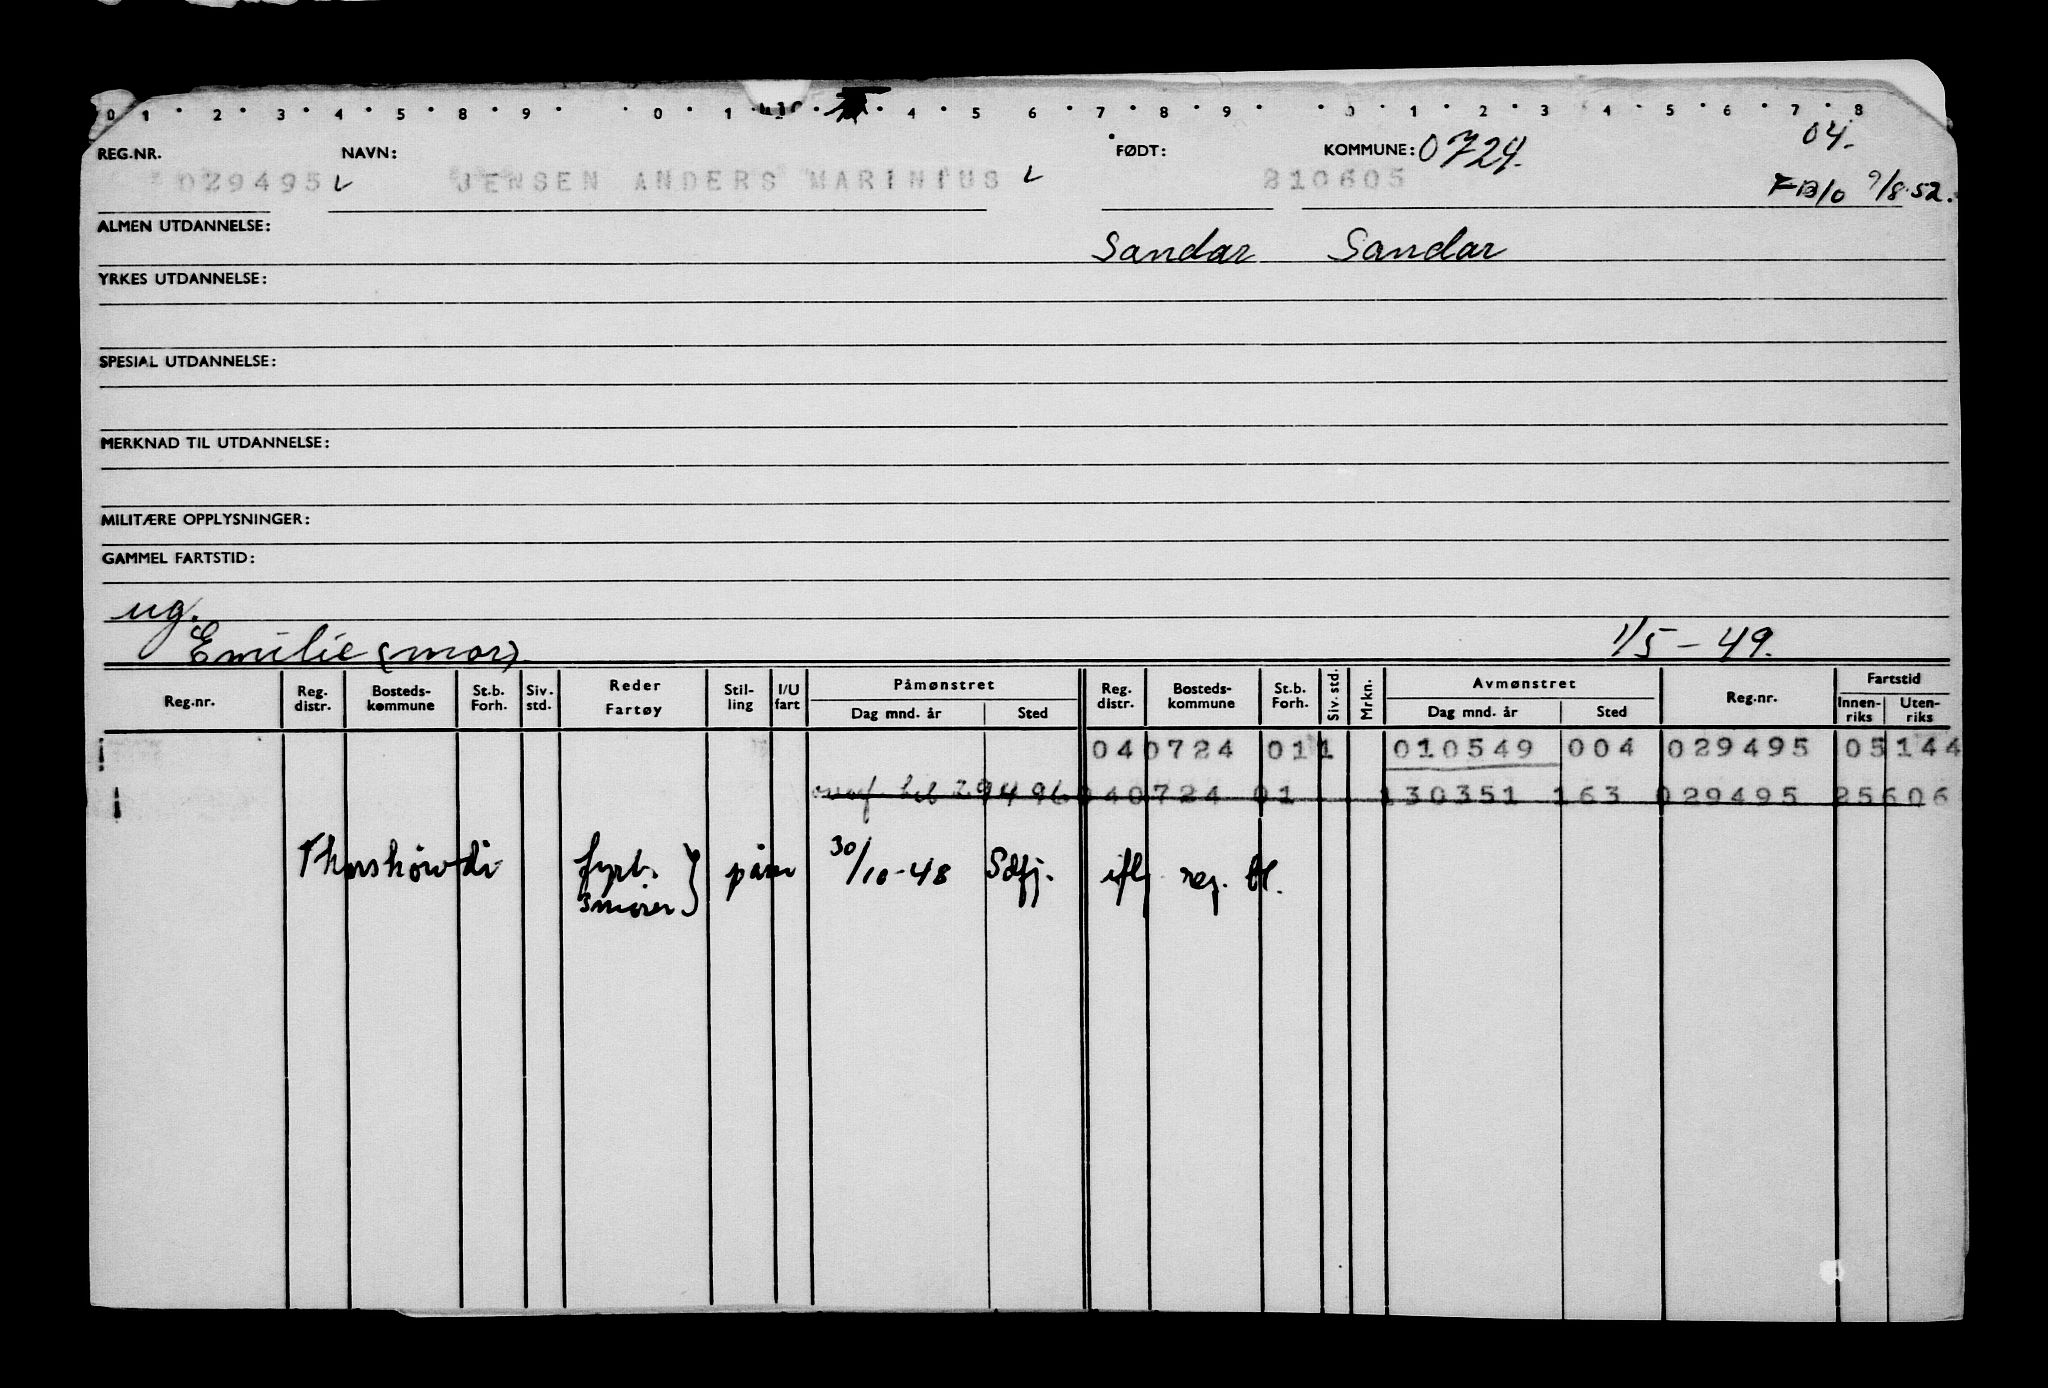 0 1 2 3 4 5 8 9 0 1 4 5 6 7 8 9 0 1 2 3 4 5 6 7 8
REG.NR. NAVN: FØDT: KOMMUNE: 0724. 04.
029495 JENSEN ANDERS MARINIUS 210605 FB/0 9/8.52.
ALMEN UTDANNELSE: Sandar Sandar
YRKES UTDANNELSE:
SPESIAL UTDANNELSE:
MERKNAD TIL UTDANNELSE:
MILITÆRE OPPLYSNINGER:
GAMMEL FARTSTID:
ug.
Emilie (mor) 1/5-49.
Reg.nr. Reg. distr. Bosteds-kommune St.b. Forh. Siv. std. Reder Fartøy Stil-ling I/U fart Påmønstret Dag mnd. år Sted Reg. distr. Bosteds-kommune St.b. Forh. Siv. std. Mrkn. Avmønstret Dag mnd. år Sted Reg.nr. Fartstid Innen-riks Uten-riks
040724 011 010549 004 029495 05144
29496 040724 01 130351 163 029495 25606
Thorshøvdi fyrb. } påm 30/10-48 Sdfj. ifl reg. bl.
smører